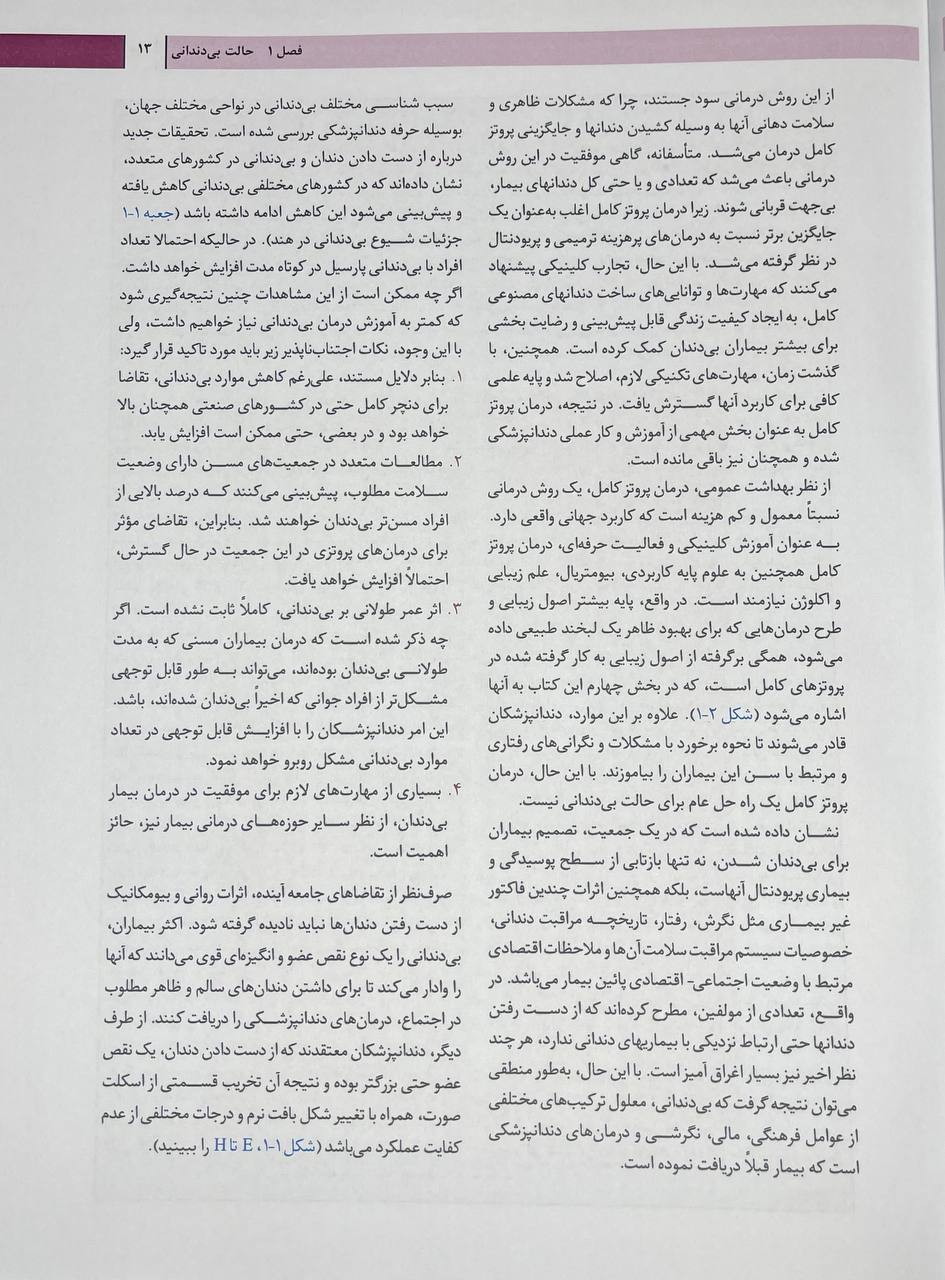 فصل ۱ حالت بی‌دندانی ۱۳
از این روش درمانی سود جستند، چرا که مشکلات ظاهری و
سلامت دهانی آنها به وسیله کشیدن دندانها و جایگزینی پروتز
کامل درمان می‌شـد. متأسفانه، گاهی موفقیت در این روش
درمانی باعث می‌شد که تعدادی و یا حتی کل دندانهای بیمار،
بی‌جهت قربانی شوند. زیرا درمان پروتز کامل اغلب به‌عنوان یک
جایگزین برتر نسبت به درمان‌های پرهزینه ترمیمی و پریودنتال
در نظر گرفته می‌شـد. با این حال، تجارب کلینیکی پیشنهاد
می‌کنند که مهارت‌ها و توانایی‌های ساخت دندانهای مصنوعی
کامل، به ایجاد کیفیت زندگی قابل پیش‌بینی و رضایت بخشی
برای بیشتر بیماران بی‌دندان کمک کرده است. همچنین، با
گذشت زمان، مهارت‌های تکنیکی لازم، اصلاح شد و پایه علمی
کافی برای کاربرد آنها گسترش یافت. در نتیجه، درمان پروتز
کامل به عنوان بخش مهمی از آموزش و کار عملی دندانپزشکی
شده و همچنان نیز باقی مانده است.
از نظر بهداشت عمومی، درمان پروتز کامل، یک روش درمانی
نسبتاً معمول و کم هزینه است که کاربرد جهانی واقعی دارد.
بـه عنوان آموزش کلینیکی و فعالیت حرفه‌ای، درمان پروتز
کامل همچنین به علوم پایه کاربردی، بیومتریال، علم زیبایی
و اکلوژن نیازمند اسـت. در واقع، پایه بیشتر اصول زیبایی و
طرح درمان‌هایی که برای بهبود ظاهر یک لبخند طبیعی داده
می‌شود، همگی برگرفته از اصول زیبایی به کار گرفته شده در
پروتزهای کامل اسـت، که در بخش چهارم این کتاب به آنها
اشاره می‌شود (شکل ۲-۱). علاوه بر این موارد، دندانپزشکان
قادر می‌شوند تا نحوه برخورد با مشکلات و نگرانی‌های رفتاری
و مرتبط با سـن این بیماران را بیاموزند. با این حال، درمان
پروتز کامل یک راه حل عام برای حالت بی‌دندانی نیست.
نشـان داده شده است که در یک جمعیت، تصمیم بیماران
برای بی‌دندان شـدن، نه تنها بازتابی از سـطح پوسیدگی و
بیماری پریودنتال آنهاست، بلکه همچنین اثرات چندین فاکتور
غیر بیمـاری مثل نگرش، رفتار، تاریخچـه مراقبت دندانی،
خصوصیات سیستم مراقبت سلامت آن‌ها و ملاحظات اقتصادی
مرتبط با وضعیت اجتماعی- اقتصادی پائین بیمار می‌باشد. در
واقـع، تعدادی از مولفین، مطرح کرده‌اند که از دسـت رفتن
دندانها حتی ارتباط نزدیکی با بیماریهای دندانی ندارد، هر چند
نظر اخیر نیز بسیار اغراق آمیز است. با این حال، به‌طور منطقی
می‌توان نتیجه گرفت که بی‌دندانی، معلول ترکیب‌های مختلفی
از عوامل فرهنگی، مالی، نگرشـی و درمان‌های دندانپزشکی
است که بیمار قبلاً دریافت نموده است.
سبب شناسـی مختلف بی‌دندانی در نواحی مختلف جهان،
بوسیله حرفه دندانپزشکی بررسی شده است. تحقیقات جدید
درباره از دست دادن دندان و بی‌دندانی در کشورهای متعدد،
نشان داده‌اند که در کشورهای مختلفی بی‌دندانی کاهش یافته
و پیش‌بینی می‌شود این کاهش ادامه داشته باشد (جعبه ۱-۱
جزئیات شـیوع بی‌دندانی در هند). در حالیکه احتمالا تعداد
افراد با بی‌دندانی پارسیل در کوتاه مدت افزایش خواهد داشت.
اگر چه ممکن است از این مشاهدات چنین نتیجه‌گیری شود
که کمتر به آموزش درمان بی‌دندانی نیاز خواهیم داشت، ولی
با این وجود، نکات اجتناب‌ناپذیر زیر باید مورد تاکید قرار گیرد:
۱. بنابر دلایل مستند، علی‌رغم کاهش موارد بی‌دندانی، تقاضا
برای دنچر کامل حتی در کشـورهای صنعتی همچنان بالا
خواهد بود و در بعضی، حتی ممکن است افزایش یابد.
۲. مطالعـات متعدد در جمعیت‌های مسـن دارای وضعیت
سـلامت مطلوب، پیش‌بینی می‌کنند کـه درصد بالایی از
افراد مسن‌تر بی‌دندان خواهند شد. بنابراین، تقاضای مؤثر
برای درمان‌های پروتزی در این جمعیت در حال گسترش،
احتمالاً افزایش خواهد یافت.
۳. اثر عمر طولانی بر بی‌دندانی، کاملاً ثابت نشده است. اگر
چه ذکر شده اسـت که درمان بیماران مسنی که به مدت
طولانـی بی‌دندان بوده‌اند، می‌تواند بـه طور قابل توجهی
مشـکل‌تر از افراد جوانی که اخیراً بی‌دندان شده‌اند، باشد.
این امر دندانپزشـکان را با افزایـش قابل توجهی در تعداد
موارد بی‌دندانی مشکل روبرو خواهد نمود.
۴. بسیاری از مهارت‌های لازم برای موفقیت در درمان بیمار
بی‌دندان، از نظر سـایر حوزه‌هـای درمانی بیمار نیز، حائز
اهمیت است.
صرف‌نظر از تقاضاهای جامعه آینده، اثرات روانی و بیومکانیک
از دست رفتن دندان‌ها نباید نادیده گرفته شود. اکثر بیماران،
بی‌دندانی را یک نوع نقص عضو و انگیزه‌ای قوی می‌دانند که آنها
را وادار می‌کند تا برای داشتن دندان‌های سالم و ظاهر مطلوب
در اجتماع، درمان‌های دندانپزشـکی را دریافت کنند. از طرف
دیگر، دندانپزشکان معتقدند که از دست دادن دندان، یک نقص
عضو حتی بزرگتر بوده و نتیجه آن تخریب قسـمتی از اسکلت
صورت، همراه با تغییر شکل بافت نرم و درجات مختلفی از عدم
کفایت عملکرد می‌باشد (شکل ۱-۱، E تا H را ببینید).